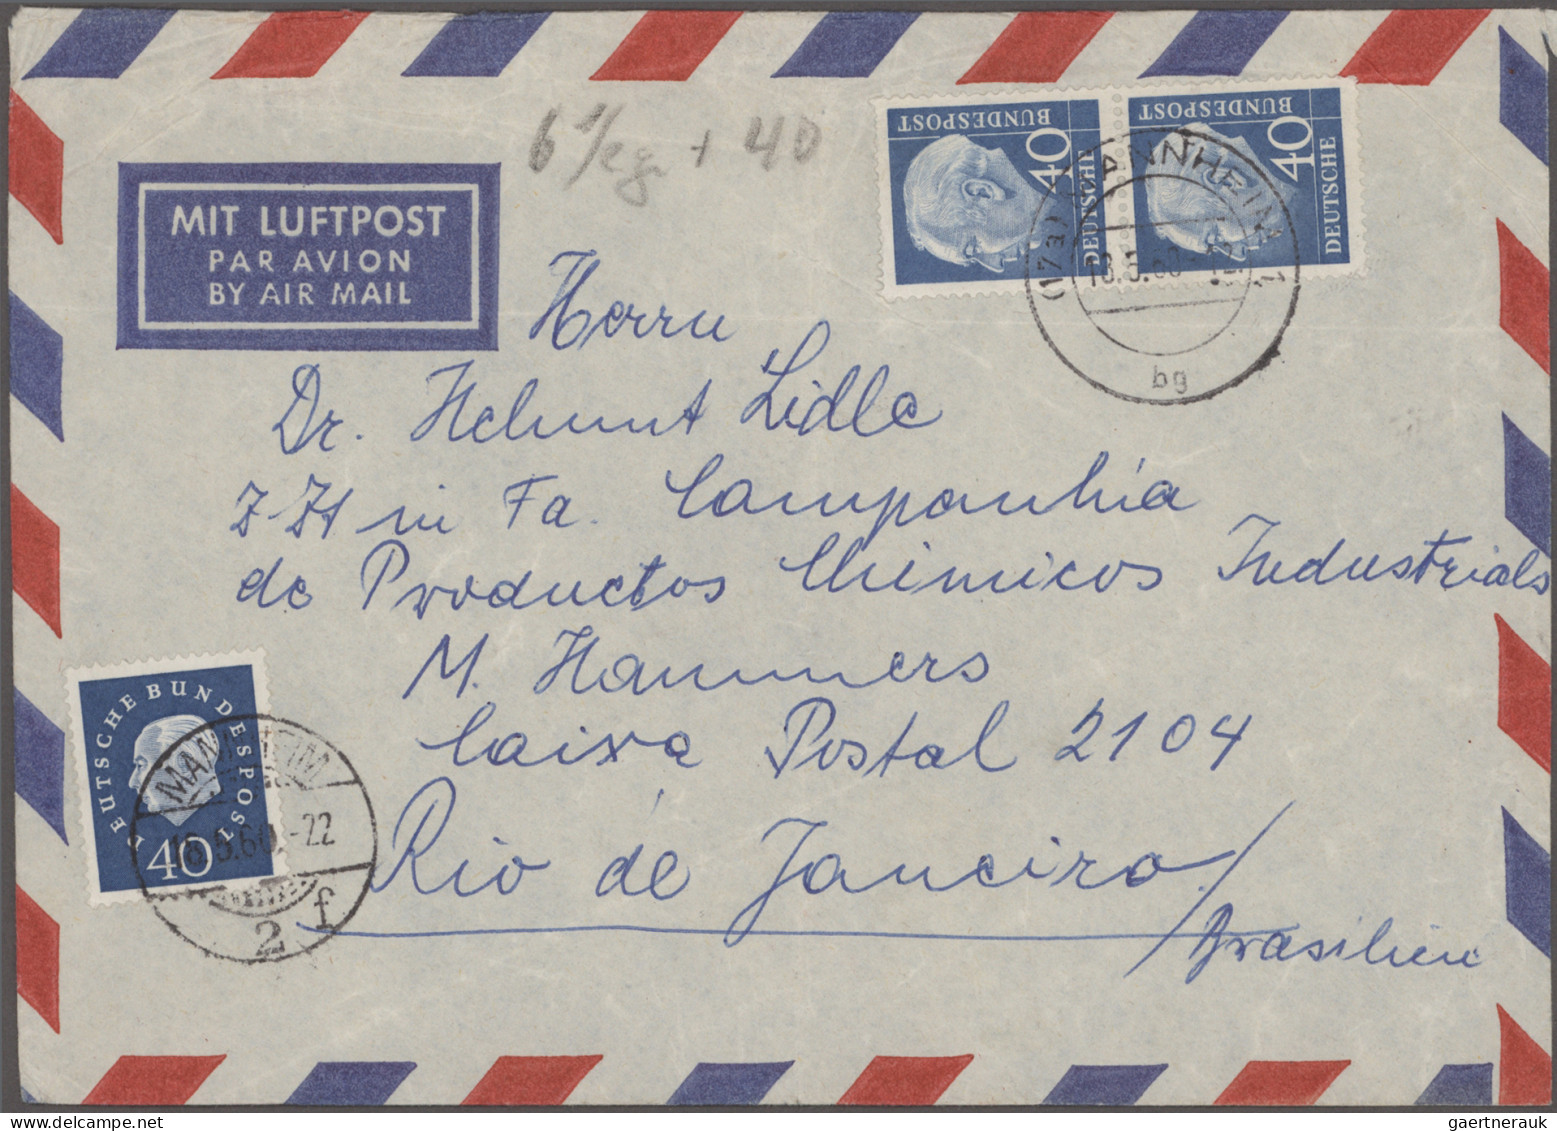 6 1/2g + 40
BUNDESPOST
40
DEUTSCHE
BUNDESPOST
40
DEUTSCHE
(17a) MANNHEIM 1
18.5.60
bg
MIT LUFTPOST
PAR AVION
BY AIR MAIL
Herrn
Dr. Helmut Lidle
z Zt in Fa. Companhia
de Productos Chimicos Industrials
M. Hammers
Caixa Postal 2104
Rio de Janeiro/
/Brasilien
DEUTSCHE BUNDESPOST
40
MANNHEIM
18.5.60.-22
2 f
gaertnerauk